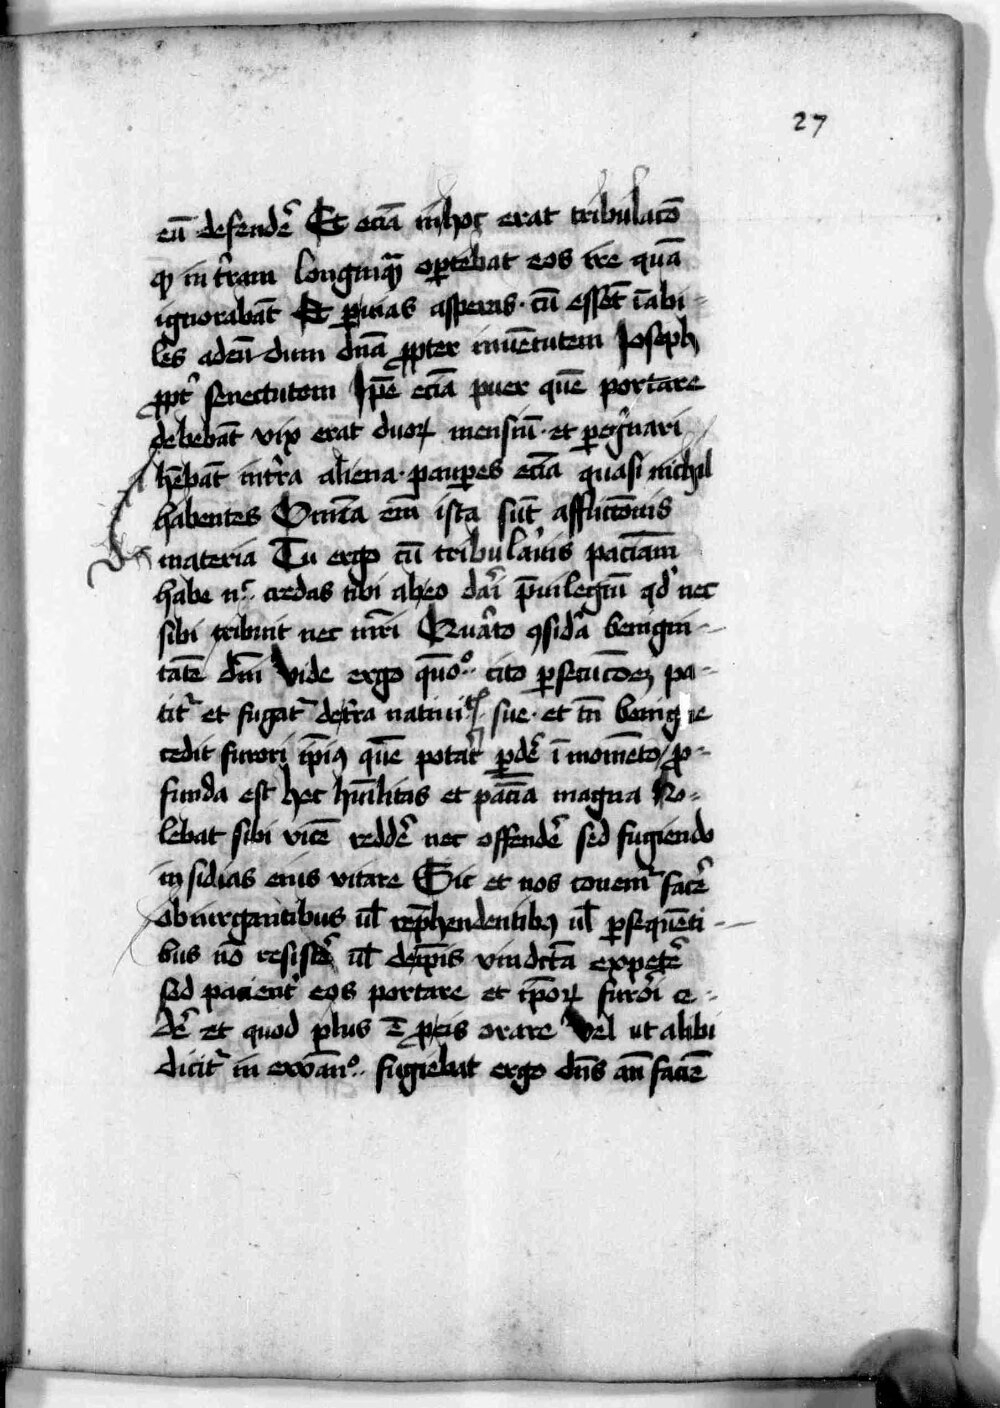 27
eū defendē Et eciā inhoc erat tribulacō
ꝙ in tr̄am longinquā oꝑtebat eos ire quā
ignorabāt Et ꝑ uias asperas · cū essēt īabi-
les ad eūdum dn̄a ꝓpter iuuētutem Joseph
ꝓpt̉ senectutem Ip̄e eciā puer quē portare
debebāt vix erat duoꝝ mensiū · et ꝑeg̉nari
hēbāt in tr̄a aliena · pauꝑes eciā quasi nichil
habentes Om̄ia em̄ ista sūt afflictōnis
materia Tu ergo cū tribularis paciā
habe nᶜ credas tibi ab eo dari p̄uilegiū qd̉ nec
sibi tribuit nec mr̄i Quarto ꝯsidera benigni-
tatē dn̄i Vide ergo quōº cito ꝑsecucōeꝫ pa-
tit᷑ et fugat᷑ de tr̄a natiuitꝭ sue · et tn̄ benigne
cedit furori ip̄iꝰ quē potat̉ ꝑdē ī momēto ꝓ-
funda est hec hūilitas et pacīa magna No-
lebat sibi vicē reddē nec offendē sed fugiendo
insidias eius vitare Sic et nos couenit facē
obiurgantibus ul̄ rep̄hendentibꝰ ul̄ ꝑsequēti-
bus nō resistē ul̄ de ip̄is vindctā expetē
sed pacient̉ eos portare et ip̄oꝝ furori ce-
dē et quod plus ē ꝓ eis orare Vel ut alibi
dicit᷑ in ewanº · fugiebat ergo dn̄s an̄ faciē